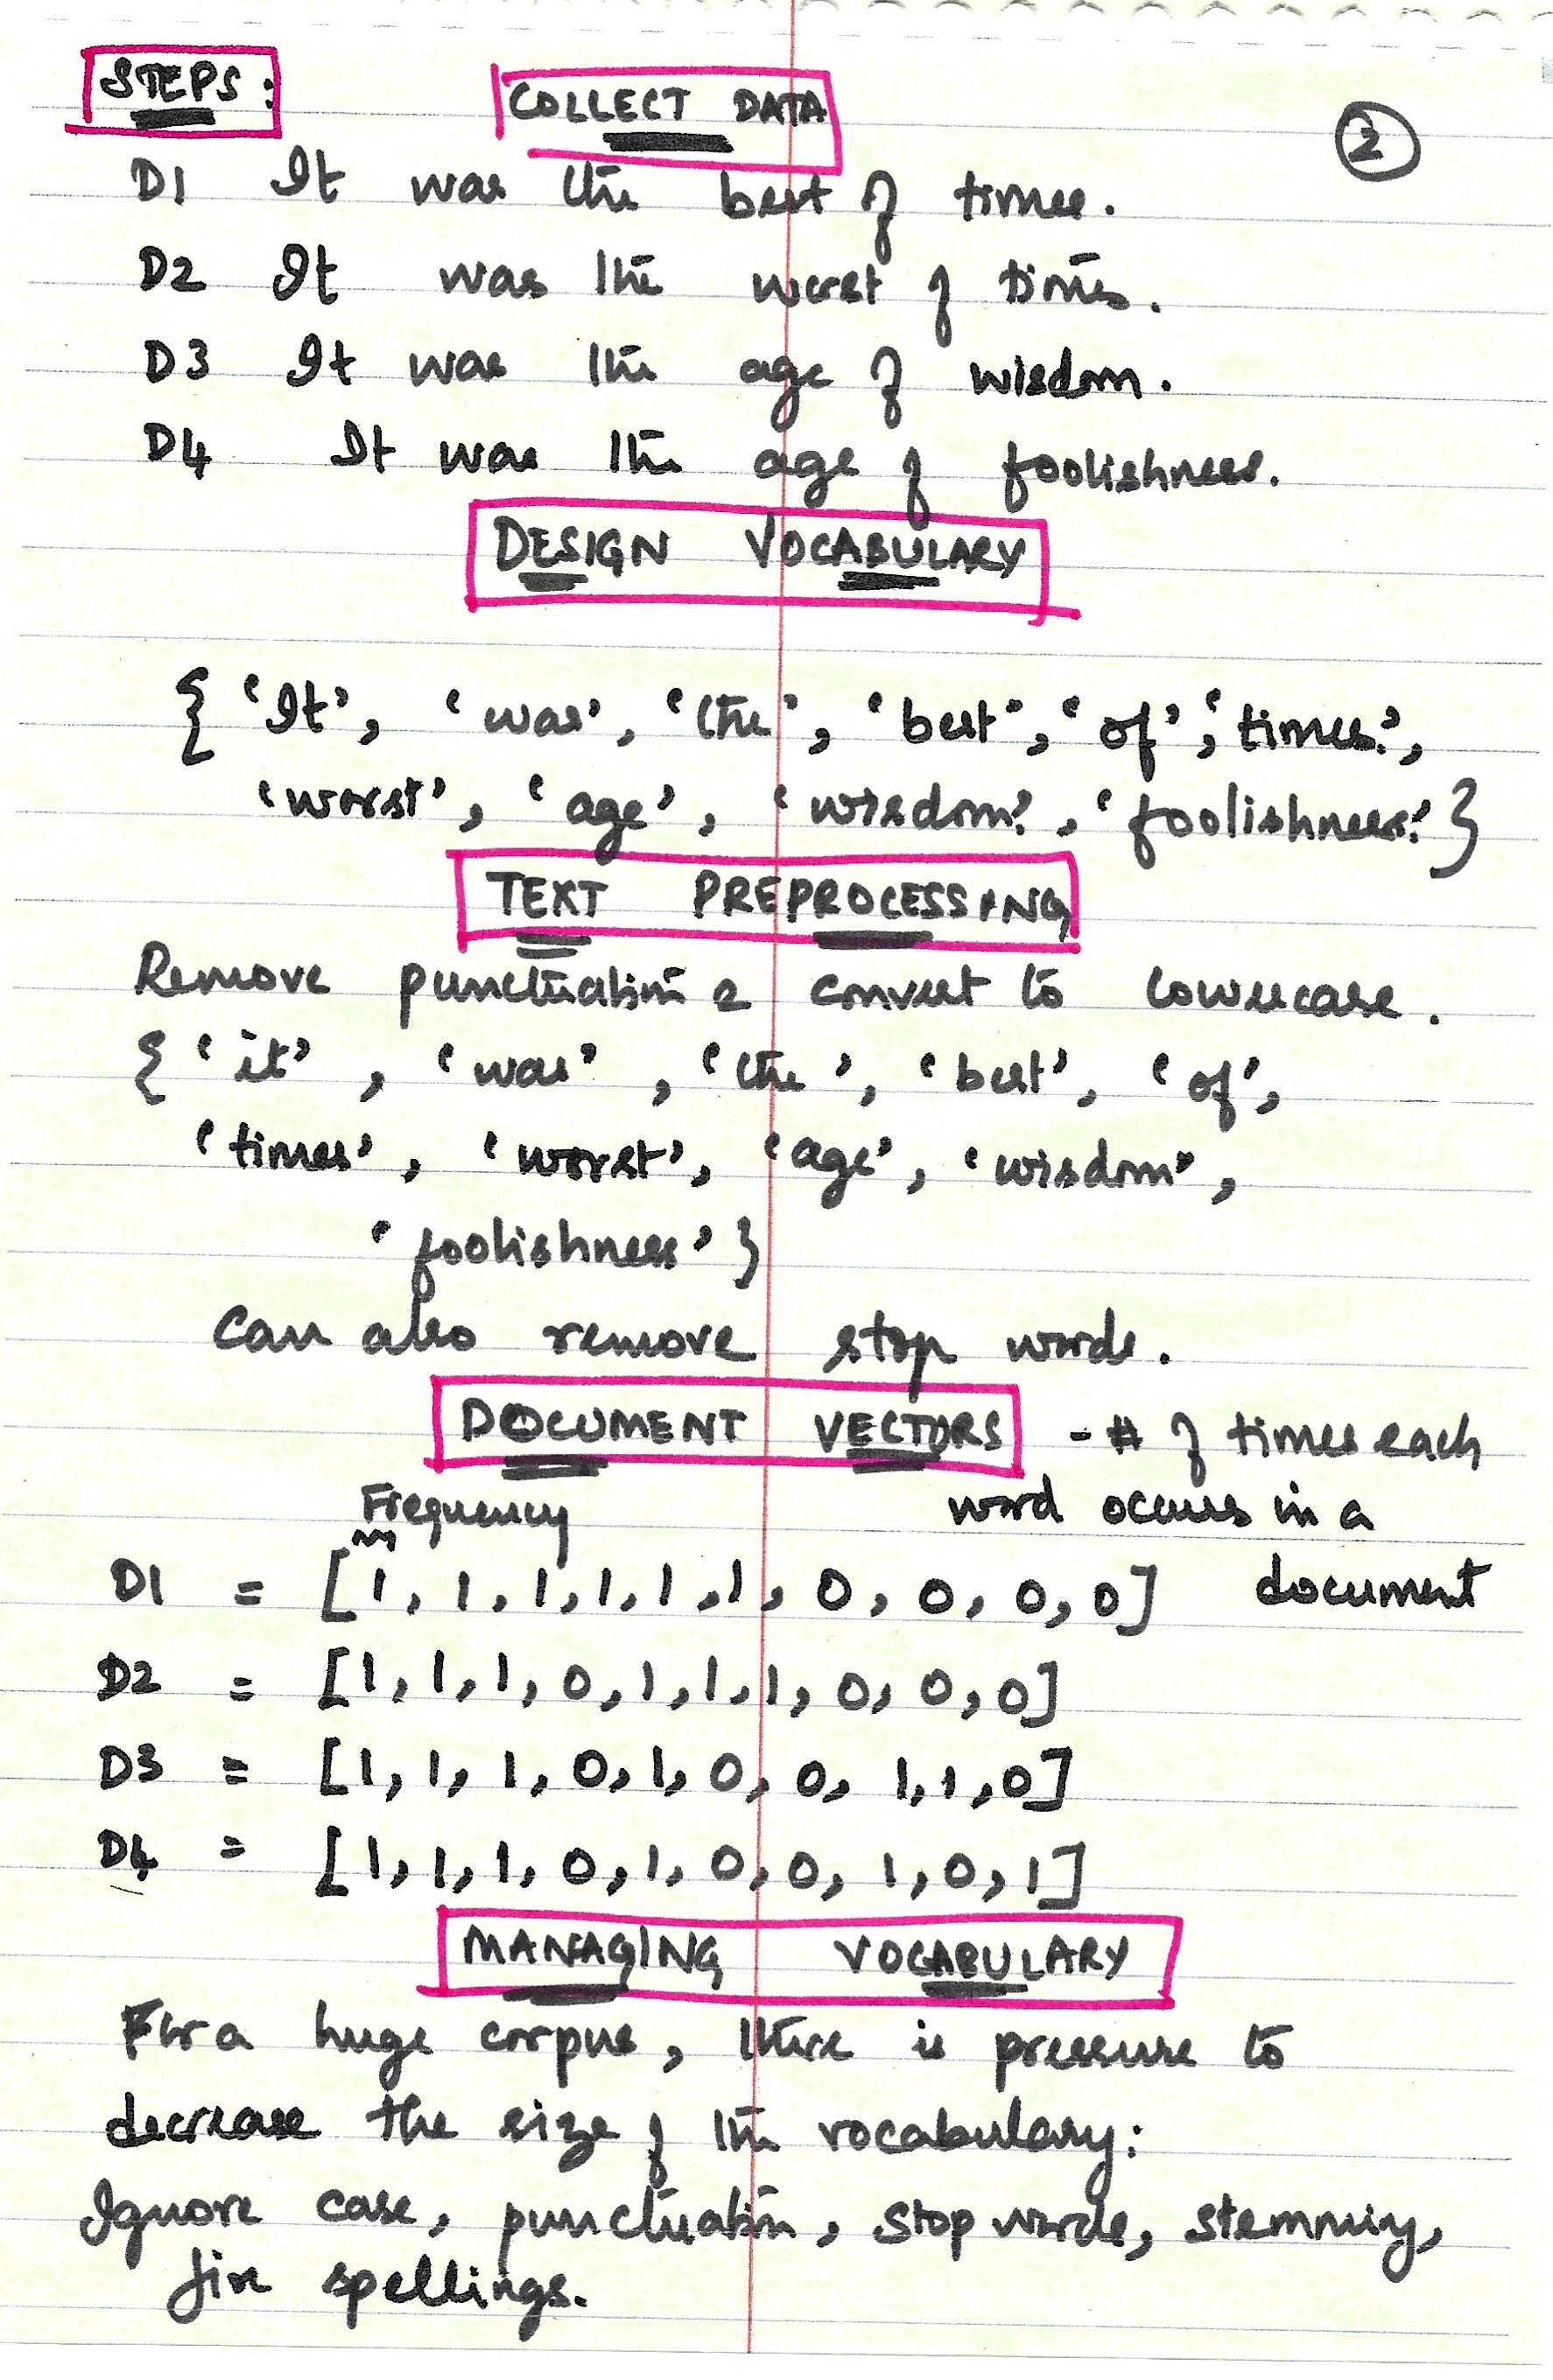 STEPS:
COLLECT DATA
2
D1 It was the best of times.
D2 It was the worst of times.
D3 It was the age of wisdom.
D4 It was the age of foolishness.
DESIGN VOCABULARY
{ 'It', 'was', 'the', 'best', 'of', 'times.',
'worst', 'age', 'wisdom.', 'foolishness.' }
TEXT PREPROCESSING
Remove punctuation & convert to lowercase.
{ 'it', 'was', 'the', 'best', 'of',
'times', 'worst', 'age', 'wisdom',
'foolishness' }
Can also remove stop words.
DOCUMENT VECTORS - # of times each
Frequency word occurs in a
D1 = [1, 1, 1, 1, 1, 1, 0, 0, 0, 0] document
D2 = [1, 1, 1, 0, 1, 1, 1, 0, 0, 0]
D3 = [1, 1, 1, 0, 1, 0, 0, 1, 1, 0]
D4 = [1, 1, 1, 0, 1, 0, 0, 1, 0, 1]
MANAGING VOCABULARY
For a huge corpus, there is pressure to
decrease the size of the vocabulary:
Ignore case, punctuation, stop words, stemming,
fix spellings.